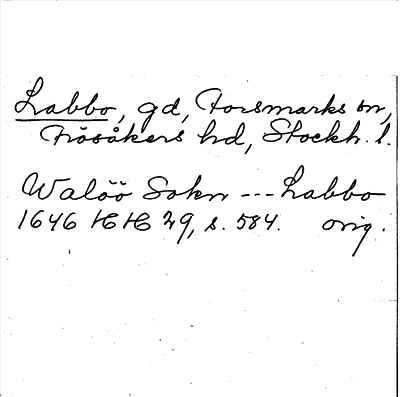 Labbo, gd, Forsmarks sn,
Frösåkers hd, Stockh. l.
Walöö Sokn --- Labbo
1646 HH 29, s. 584. orig.